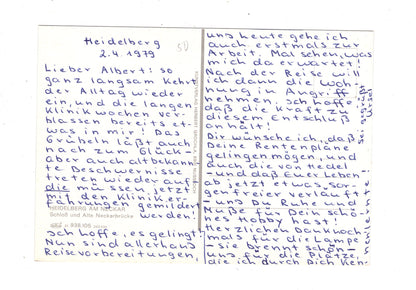 Heidelberg
2.4.1979
Lieber Albert: so
ganz langsam kehrt
der Alltag wieder
ein, und die langen
Klinikwochen ver-
blassen bereits et-
was in mir! Das
Grübeln läßt auch
nach zum Glück –
aber auch altbekann-
te Beschwernisse
treten wieder auf –
die müssen jetzt
mit den Kliniker-
fahrungen gemildert
werden!
HEIDELBERG AM NECKAR
Schloß und Alte Neckarbrücke
Ich hoffe, es gelingt!
Nun sind allerhand
Reisevorbereitungen,
uns heute gehe ich
auch erstmals zur
Arbeit. Mal sehen, was
mich da erwartet!
Nach der Reise will
ich dann die Woh-
nung in Angriff
nehmen, ich hoffe,
daß die Kraft zu
diesem Entschluß
anhält!
Dir wünsche ich, daß
Deine Rentenpläne
gelingen mögen, und
auch die von Hedel
– und daß Euer Leben
ab jetzt etwas sor-
genfreier verläuft
– uns Du Ruhe und
Muße für Dein schö-
nes Hobby hast!
Herzlichen Dank noch-
mals für die Lampe
– sie brennt schön –
uns für die Plätze,
die ich durch Dich ken-
nenlernte
Sei gegrüßt
Ursel